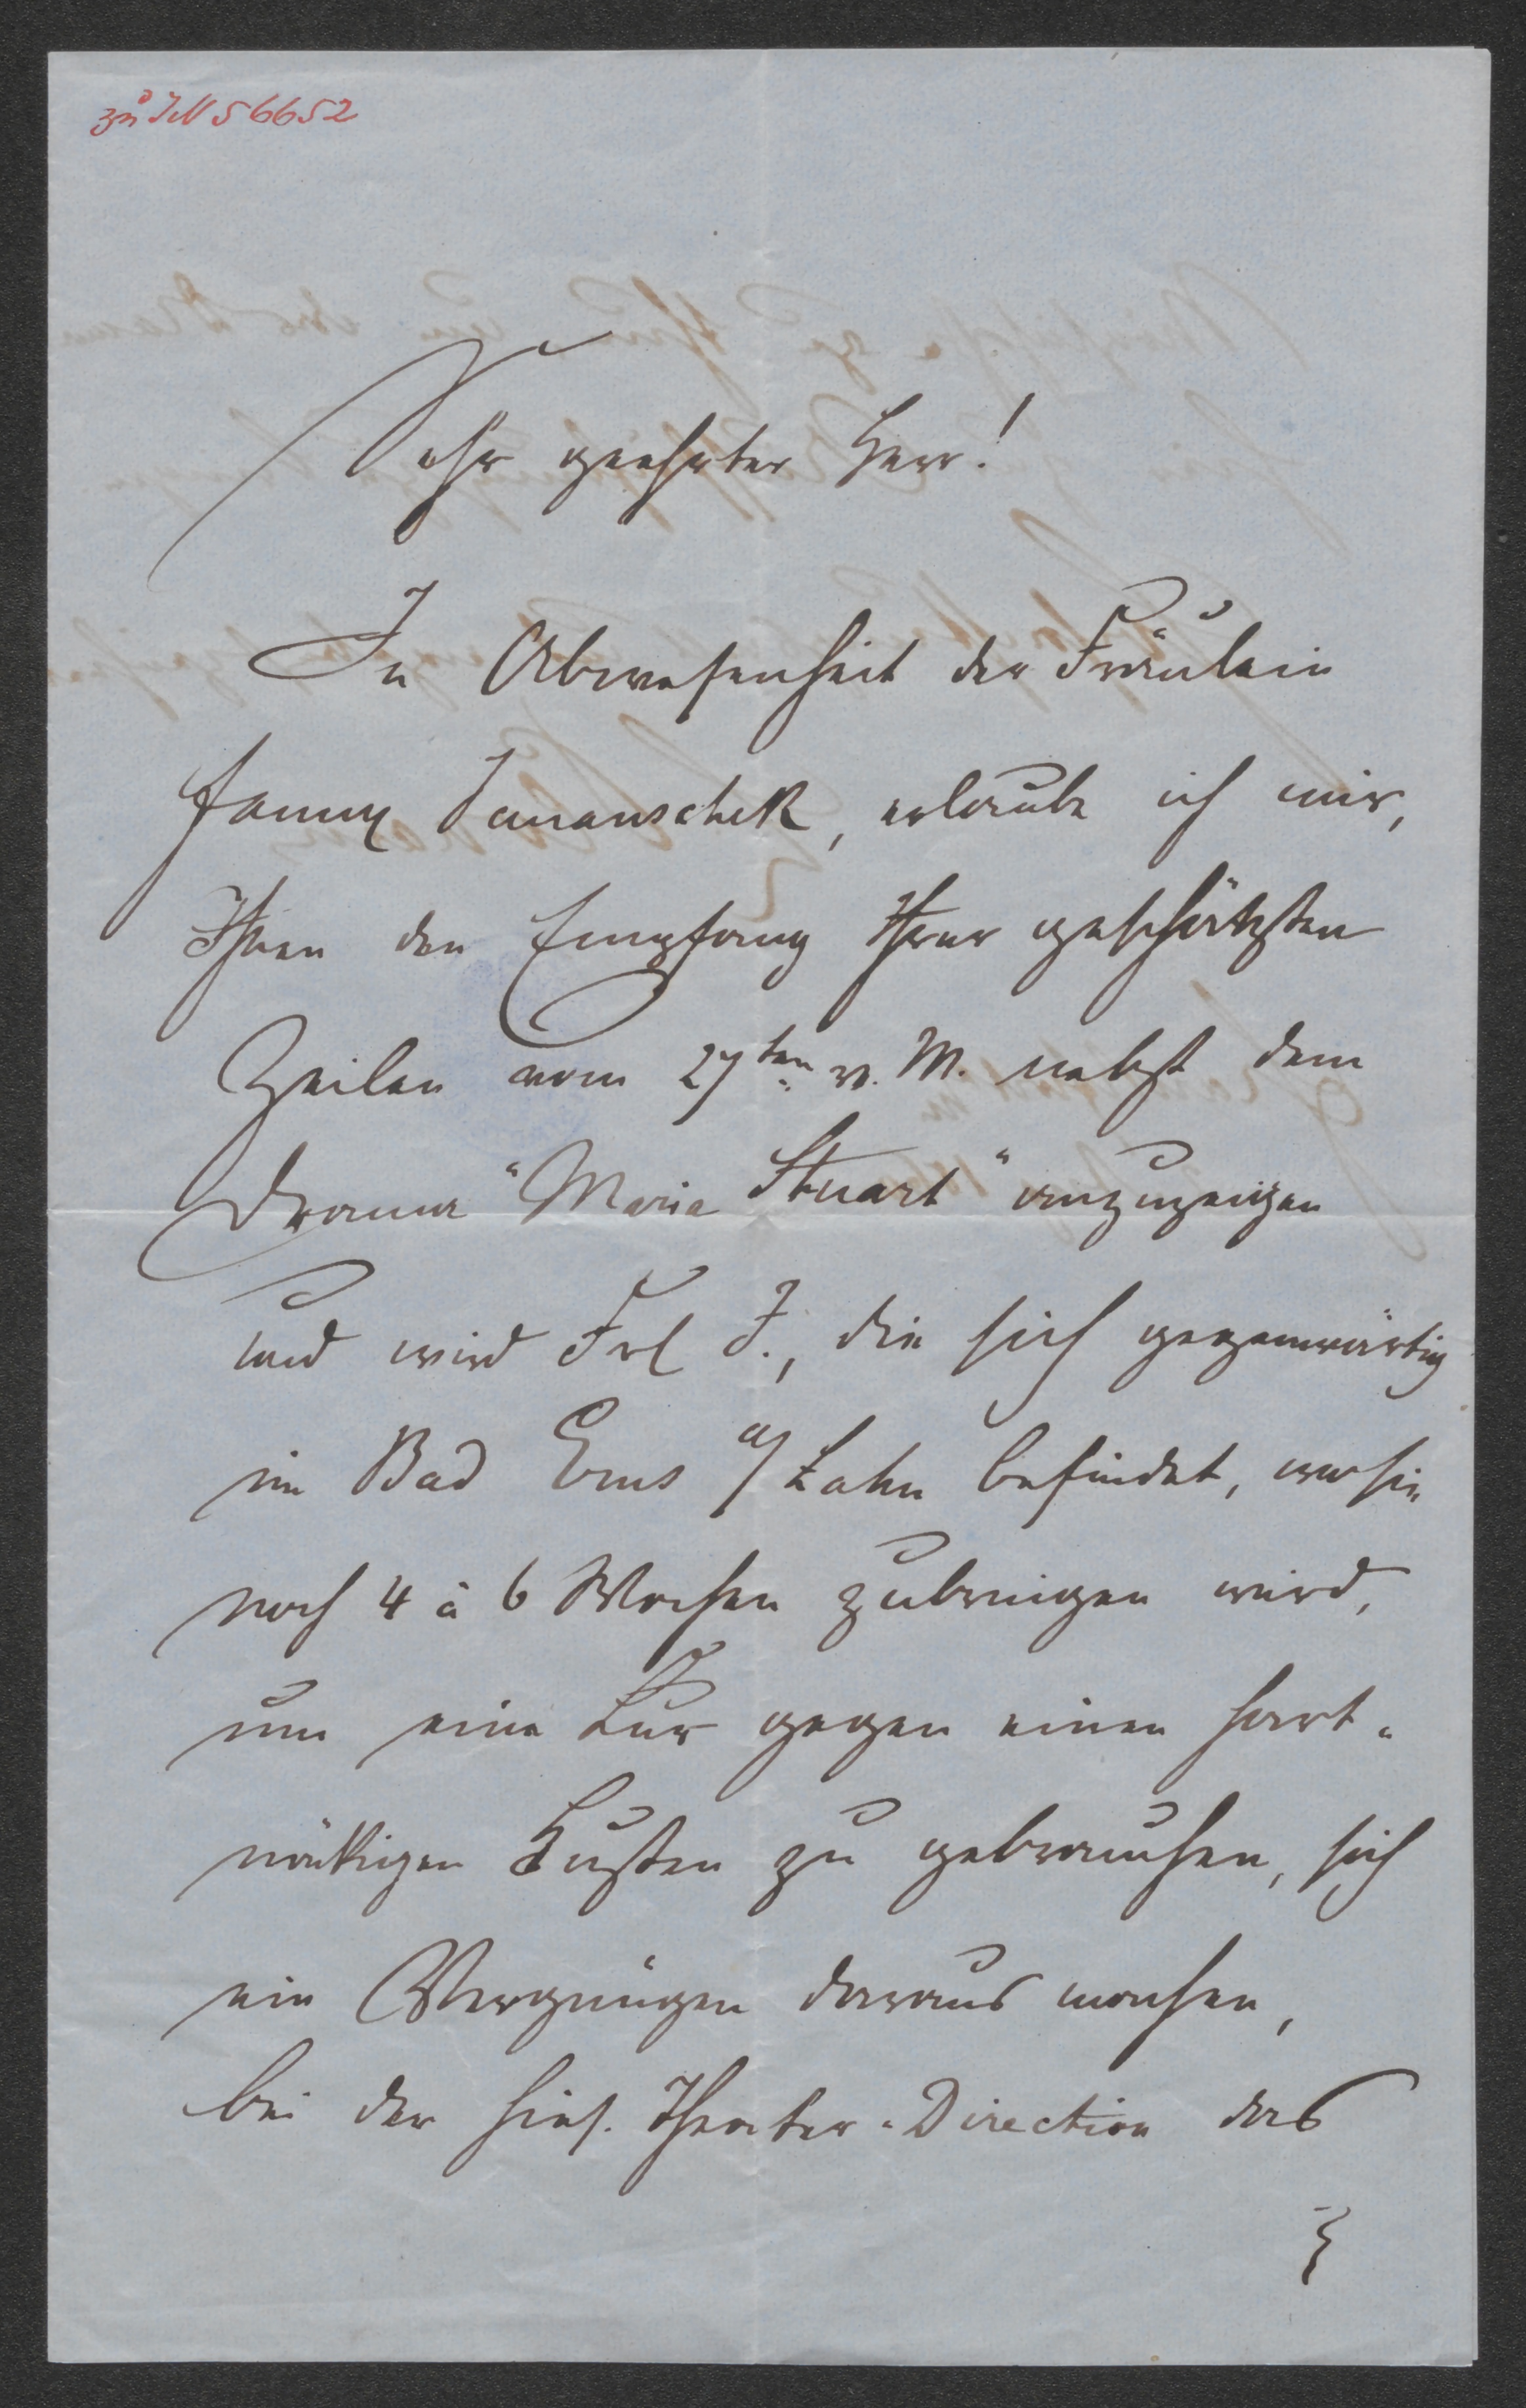 zu IN 56652
Sehr geehrter Herr!
In Abwesenheit der Fräulein
Fanny Janauschek, erlaube ich mir,
Ihnen den Empfang Ihrer geschätzten
Zeilen vom 27ten v. M. nebst dem
Drama "Maria Stuart" anzuzeigen
und wird Frl J., die sich gegenwärtig
im Bad Ems a/ Lahn befindet, wo sie
noch 4 à 6 Wochen zubringen wird,
um eine Kur gegen einen hart-
näckigen Husten zu gebrauchen, sich
ein Vergnügen daraus machen,
bei der hies. Theater-Direction das